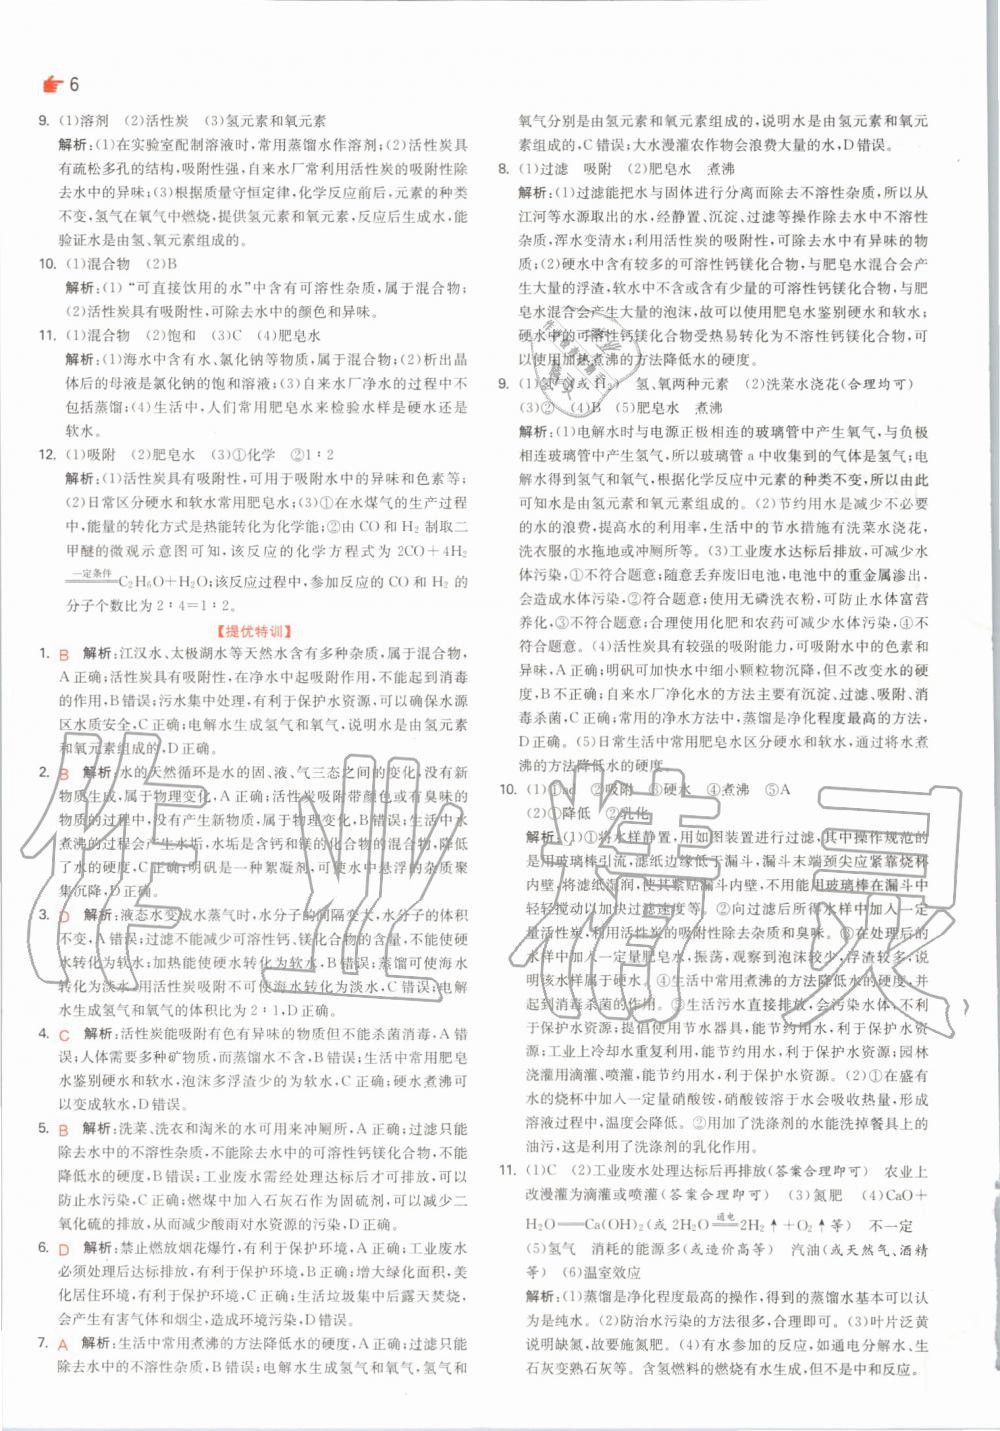 6
9. (1)溶剂 (2)活性炭 (3)氢元素和氧元素
解析:(1)在实验室配制溶液时,常用蒸馏水作溶剂;(2)活性炭具
有疏松多孔的结构,吸附性强,自来水厂常利用活性炭的吸附性除
去水中的异味;(3)根据质量守恒定律,化学反应前后,元素的种类
不变,氢气在氧气中燃烧,提供氢元素和氧元素,反应后生成水,能
验证水是由氢、氧元素组成的。
10. (1)混合物 (2)B
解析:(1)“可直接饮用的水”中含有可溶性杂质,属于混合物;
(2)活性炭具有吸附性,可除去水中的颜色和异味。
11. (1)混合物 (2)饱和 (3)C (4)肥皂水
解析:(1)海水中含有水、氯化钠等物质,属于混合物;(2)析出晶
体后的母液是氯化钠的饱和溶液;(3)自来水厂净水的过程中不包
括蒸馏;(4)生活中,人们常用肥皂水来检验水样是硬水还是
软水。
12. (1)吸附 (2)肥皂水 (3)①化学 ②1∶2
解析:(1)活性炭具有吸附性,可吸附水中的异味和色素等;
(2)日常区分硬水和软水常用肥皂水;(3)①在水煤气的生产过程
中,能量的转化方式是热能转化为化学能;②由 CO 和 H₂ 制取二
甲醚的微观示意图可知,该反应的化学方程式为 2CO+4H₂
一定条件
═══C₂H₆O+H₂O;该反应过程中,参加反应的 CO 和 H₂ 的
分子个数比为 2∶4=1∶2。
【提优特训】
1. B 解析:江汉水、太极湖水等天然水含有多种杂质,属于混合物,
A正确;活性炭具有吸附性,在净水中起吸附作用,不能起到消毒
的作用,B错误;污水集中处理,有利于保护水资源,可以确保水源
区水质安全,C正确;电解水生成氢气和氧气,说明水是由氢元素
和氧元素组成的,D正确。
2. B 解析:水的天然循环是水的固、液、气三态之间的变化,没有新
物质生成,属于物理变化,A正确;活性炭吸附带颜色或有臭味的
物质的过程中,没有产生新物质,属于物理变化,B错误;生活中水
煮沸的过程会产生水垢,水垢是含钙和镁的化合物的混合物,降低
了水的硬度,C正确;明矾是一种絮凝剂,可使水中悬浮的杂质聚
集沉降,D正确。
3. D 解析:液态水变成水蒸气时,水分子的间隔变大,水分子的体积
不变,A错误;过滤不能减少可溶性钙、镁化合物的含量,不能使硬
水转化为软水;加热能使硬水转化为软水,B错误;蒸馏可使海水
转化为淡水,用活性炭吸附不可使海水转化为淡水,C错误;电解
水生成氢气和氧气的体积比为2∶1,D正确。
4. C 解析:活性炭能吸附有色有异味的物质但不能杀菌消毒,A错
误;人体需要多种矿物质,而蒸馏水不含,B错误;生活中常用肥皂
水鉴别硬水和软水,泡沫多浮渣少的为软水,C正确;硬水煮沸可
以变成软水,D错误。
5. B 解析:洗菜、洗衣和淘米的水可用来冲厕所,A正确;过滤只能
除去水中的不溶性杂质,不能除去水中的可溶性钙镁化合物,不能
降低水的硬度,B错误;工业废水需经处理达标后才可排放,可以
防止水污染,C正确;燃煤中加入石灰石作为固硫剂,可以减少二
氧化硫的排放,从而减少酸雨对水资源的污染,D正确。
6. D 解析:禁止燃放烟花爆竹,有利于保护环境,A正确;工业废水
必须处理后达标排放,有利于保护环境,B正确;增大绿化面积,美
化居住环境,有利于保护环境,C正确;生活垃圾集中后露天焚烧,
会产生有害气体和烟尘,造成环境污染,D错误。
7. A 解析:生活中常用煮沸的方法降低水的硬度,A正确;过滤只能
除去水中的不溶性杂质,B错误;电解水生成氢气和氧气,氢气和
氧气分别是由氢元素和氧元素组成的,说明水是由氢元素和氧元
素组成的,C错误;大水漫灌农作物会浪费大量的水,D错误。
8. (1)过滤 吸附 (2)肥皂水 煮沸
解析:(1)过滤能把水与固体进行分离而除去不溶性杂质,所以从
江河等水源取出的水,经静置、沉淀、过滤等操作除去水中不溶性
杂质,浑水变清水;利用活性炭的吸附性,可除去水中有异味的物
质;(2)硬水中含有较多的可溶性钙镁化合物,与肥皂水混合会产
生大量的浮渣,软水中不含或含有少量的可溶性钙镁化合物,与肥
皂水混合会产生大量的泡沫,故可以使用肥皂水鉴别硬水和软水;
水中的可溶性钙镁化合物受热易转化为不溶性钙镁化合物,可以
使用加热煮沸的方法降低水的硬度。
9. (1)氢气(或 H₂) 氢、氧两种元素 (2)洗菜水浇花(合理均可)
(3)② (4)B (5)肥皂水 煮沸
解析:(1)电解水时与电源正极相连的玻璃管中产生氧气,与负极
相连的玻璃管中产生氢气,所以玻璃管a中收集到的气体是氢气;电
解水得到氢气和氧气,根据化学反应中元素的种类不变,所以由此
可知水是由氢元素和氧元素组成的。(2)节约用水是减少不必要
的水的浪费,提高水的利用率,生活中的节水措施有洗菜水浇花,
洗衣服的水拖地或冲厕所等。(3)工业废水达标后排放,可减少水
体污染,①不符合题意;随意丢弃废旧电池,电池中的重金属渗出,
会造成水体污染,②符合题意;使用无磷洗衣粉,可防止水体富营
养化,③不符合题意;合理使用化肥和农药可减少水体污染,④不
符合题意。(4)活性炭具有较强的吸附能力,可吸附水中的色素和
异味,A正确;明矾可加快水中细小颗粒物沉降,但不改变水的硬
度,B不正确;自来水厂净化水的方法主要有沉淀、过滤、吸附、消
毒杀菌,C正确;常用的净水方法中,蒸馏是净化程度最高的方法,
D正确。(5)日常生活中常用肥皂水区分硬水和软水,通过将水煮
沸的方法降低水的硬度。
10. (1)①ad ②吸附 ③硬水 ④煮沸 ⑤A
(2)①降低 ②乳化
解析:(1)①将水样静置,用如图装置进行过滤,其中操作规范的
是用玻璃棒引流,滤纸边缘低于漏斗,漏斗末端颈尖应紧靠烧杯
内壁,将滤纸湿润,使其紧贴漏斗内壁,不用能用玻璃棒在漏斗中
轻轻搅动以加快过滤速度等。②向过滤后所得水样中加入一定
量活性炭,利用活性炭的吸附性除去杂质和臭味。③在处理后的
水样中加入一定量肥皂水,振荡,观察到泡沫较少,浮渣较多,说
明该水样属于硬水。④生活中常用煮沸的方法降低水的硬度,并
起到消毒杀菌的作用。⑤生活污水直接排放,会污染水体,不利
于保护水资源;提倡使用节水器具,能节约用水,利于保护水资
源;工业上冷却水重复利用,能节约用水,利于保护水资源;园林
浇灌用滴灌、喷灌,能节约用水,利于保护水资源。(2)①在盛有
水的烧杯中加入一定量硝酸铵,硝酸铵溶于水会吸收热量,形成
溶液过程中,温度会降低。②用加了洗涤剂的水能洗掉餐具上的
油污,这是利用了洗涤剂的乳化作用。
11. (1)C (2)工业废水处理达标后再排放(答案合理即可) 农业上
改漫灌为滴灌或喷灌(答案合理即可) (3)氮肥 (4)CaO+
H₂O══Ca(OH)₂(或 2H₂O═通电═2H₂↑+O₂↑等) 不一定
(5)氢气 消耗的能源多(或造价高等) 汽油(或天然气、酒精
等) (6)温室效应
解析:(1)蒸馏是净化程度最高的操作,得到的蒸馏水基本可以认
为是纯水。(2)防治水污染的方法很多,合理即可。(3)叶片泛黄
说明缺氮,故要施氮肥。(4)有水参加的反应,如通电分解水、生
石灰变熟石灰等。含氢燃料的燃烧有水生成,但不是中和反应。
作业精灵